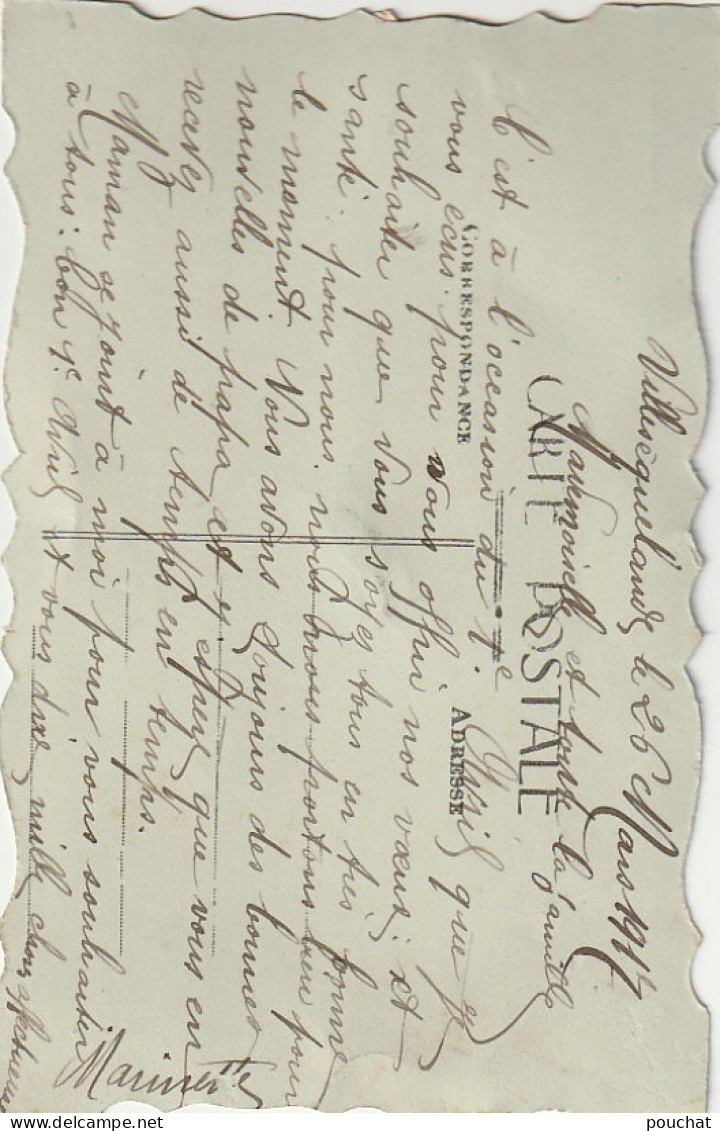 Villesèquelande le 26 Mars 1917
Mademoiselle et toute la famille
CARTE POSTALE
C'est à l'occasion du 1e Avril que je
CORRESPONDANCE
ADRESSE
vous écris. pour vous offrir nos vœux; et
souhaiter que vous soyez tous en très bonne
santé. pour nous. nous nous portons bien pour
le moment. Nous avons toujours des bonnes
nouvelles de papa et j'espère que vous en
recevez aussi de temps en temps.
Maman se joint à moi pour vous souhaiter
à tous: bon 1e Avril et vous dire mille choses affectueuses
Marinette
pouchat